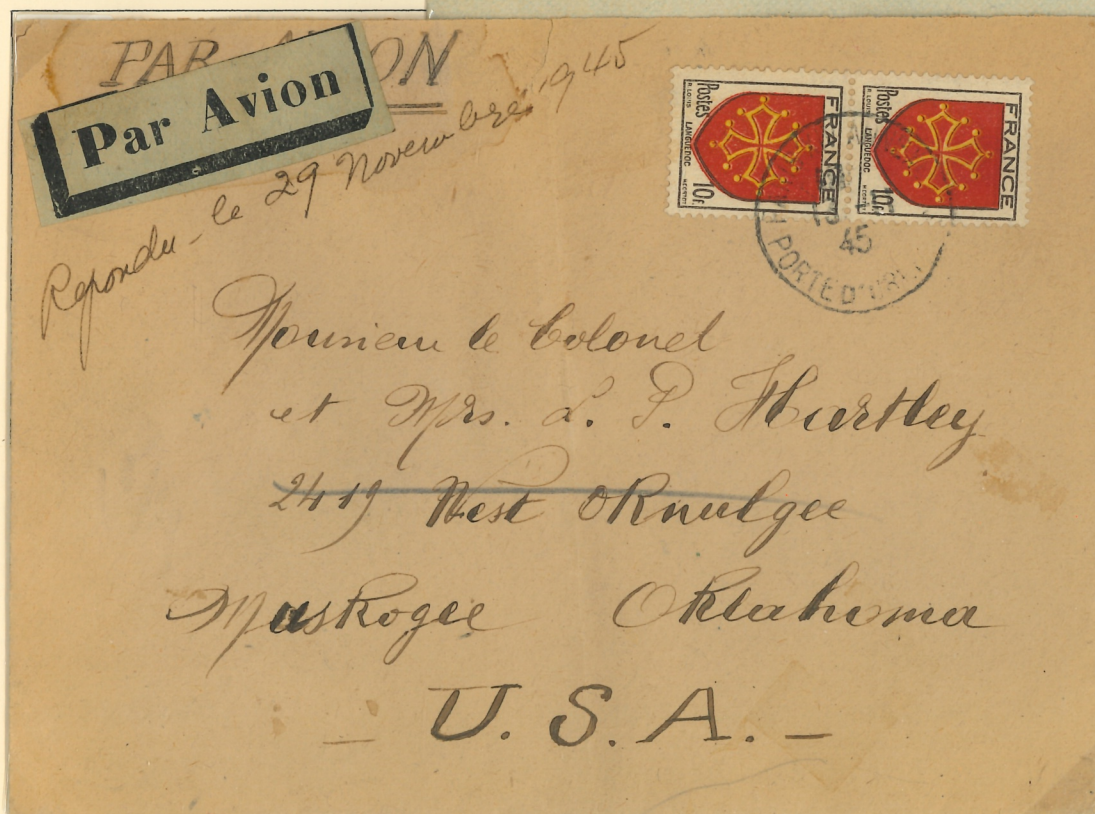 PAR AVION
Par Avion
Repondu - le 29 Novembre 1945
FRANCE
Postes
R. LOUIS LANGUEDOC
10F
FRANCE
Postes
R. LOUIS LANGUEDOC
10F
45
PORTE D'
Monsieur le Colonel
et Mrs. L. P. Hartley
2419 West Okmulgee
Muskogee Oklahoma
- U.S.A. -